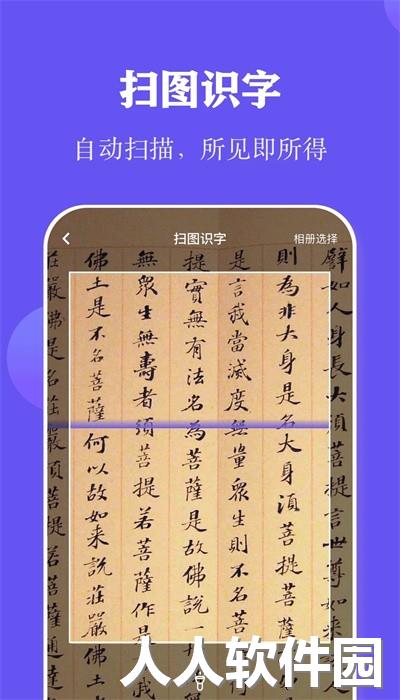 扫图识字
自动扫描，所见即所得
扫图识字
相册选择
譬如人身長大須菩提言世尊如来
則為非大身是名大身須菩提菩
是言我當滅度無量眾生則不名菩薩
提實無有法名為菩薩是故佛說一
無眾生無壽者須菩提若菩薩作是
佛土是不名菩薩何以故如来說莊嚴佛土
莊嚴佛是名莊嚴須菩提菩薩通達
人人软件园